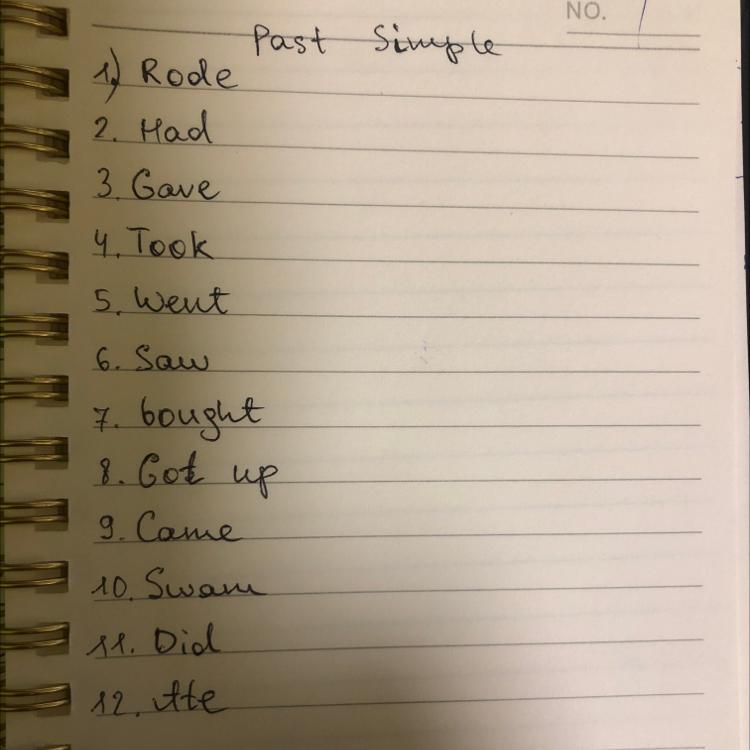 NO.
Past Simple
1) Rode
2. Had
3. Gave
4. Took
5. Went
6. Saw
7. bought
8. Got up
9. Came
10. Swam
11. Did
12. Ate